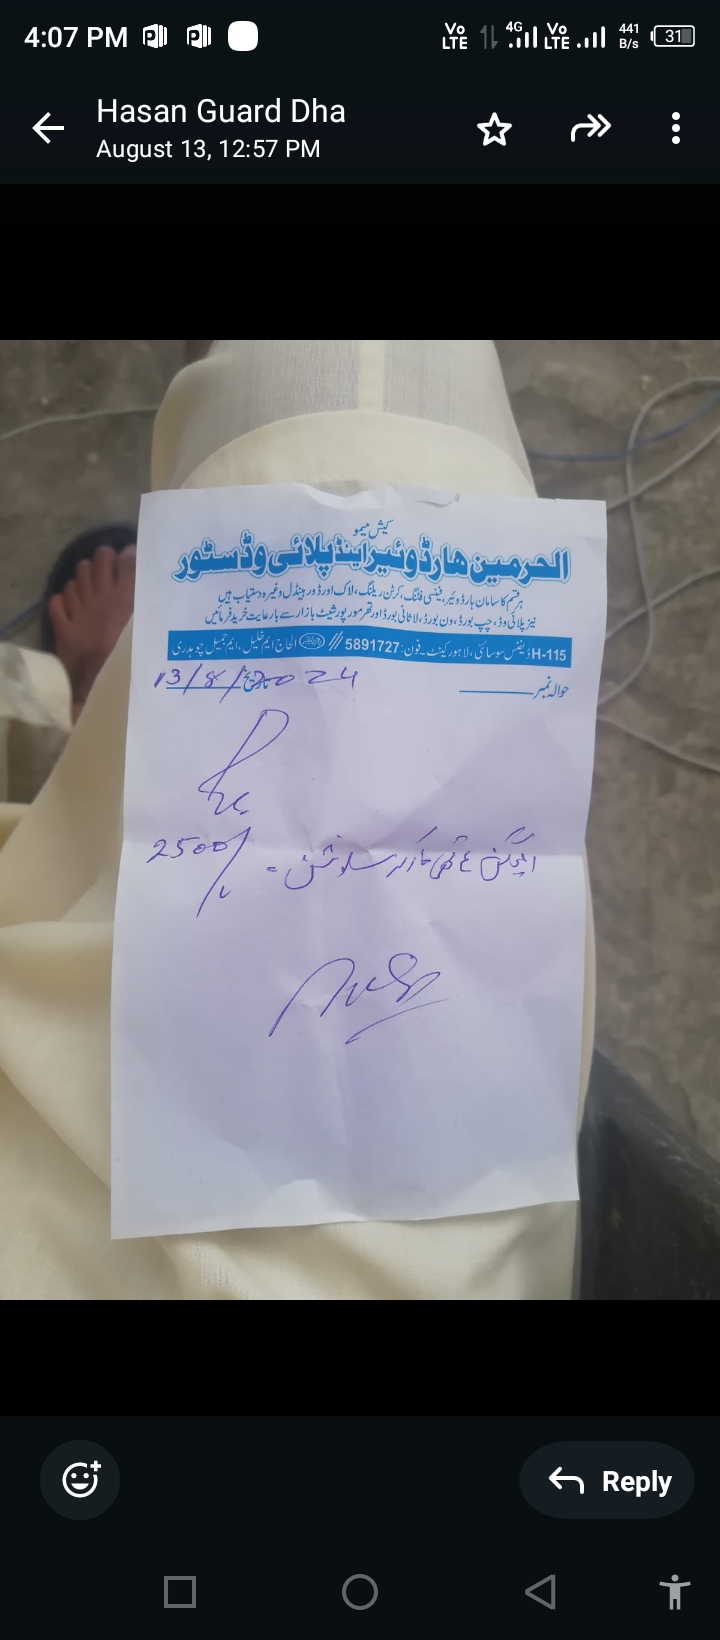 4:07 PM
Vo LTE 4G Vo LTE 441 B/s 31
Hasan Guard Dha
August 13, 12:57 PM
کیش میمو
الحرمین ہارڈوئیر اینڈ پلائی وڈ سٹور
ہر قسم کا سامان ہارڈ وئیر، فینسی فٹنگ، کرٹن ریلنگ، لاک اور ڈور ہینڈل وغیرہ دستیاب ہیں
نیز پلائی وڈ، چپ بورڈ، ون بورڈ، لاثانی بورڈ اور تھرموپور شیٹ بازار سے بارعایت خرید فرمائیں
H-115 ڈیفنس سوسائٹی، لاہور کینٹ۔ فون: 5891727 // الحاج ایم خلیل، ایم جمیل چوہدری
حوالہ نمبر
تاریخ 13/8/2024
سلوشن
2500/
Reply